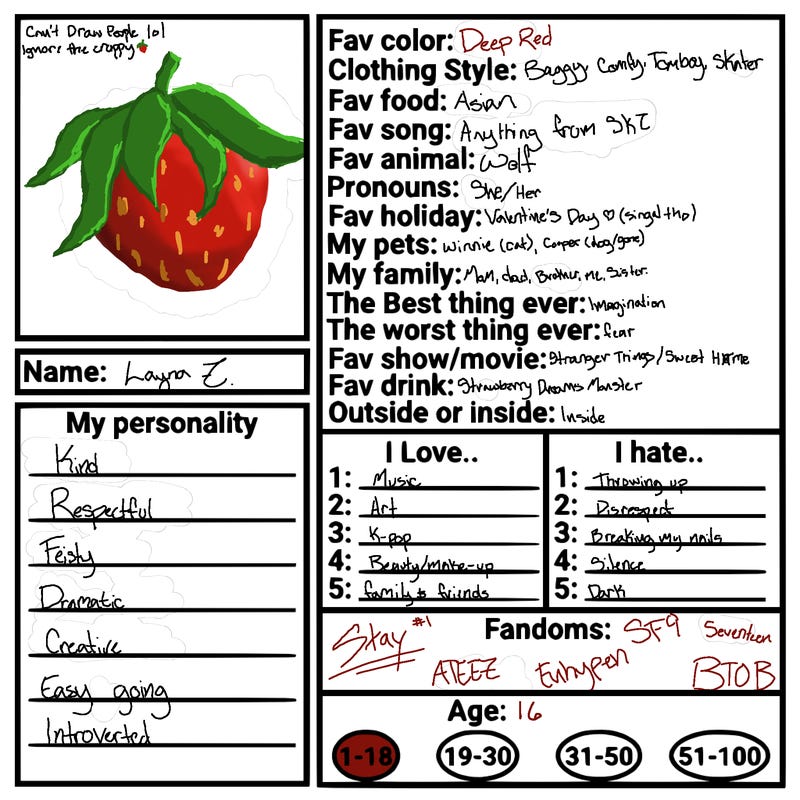 Can't Draw People lol
Ignore the crappy
Name: Layna Z.
My personality
Kind
Respectful
Feisty
Dramatic
Creative
Easy going
Introverted
Fav color: Deep Red
Clothing Style: Baggy, Comfy, Tomboy, Skater
Fav food: Asian
Fav song: Anything from SKZ
Fav animal: Wolf
Pronouns: She/Her
Fav holiday: Valentine's Day ♡ (singel tho)
My pets: Winnie (cat), Cooper (dog/gone)
My family: Mom, dad, Brother, me, Sister.
The Best thing ever: Imagination
The worst thing ever: fear
Fav show/movie: Stranger Things/Sweet Home
Fav drink: Strawberry Dreams Monster
Outside or inside: Inside
I Love..
1: Music
2: Art
3: K-pop
4: Beauty/make-up
5: family & friends
I hate..
1: Throwing up
2: Disrespect
3: Breaking my nails
4: Silence
5: Dark
Fandoms:
Stay #1
ATEEZ
Enhypen
SF9
Seventeen
BTOB
Age: 16
1-18
19-30
31-50
51-100